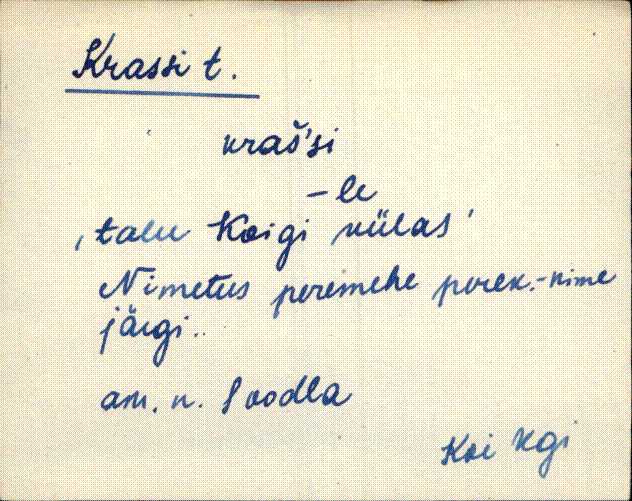 Krassi t.
kraš'si
-le
, talu Koigi külas'
Nimetus peremehe perek.-nime
järgi.
am. n. Soodla
Koi Kgi